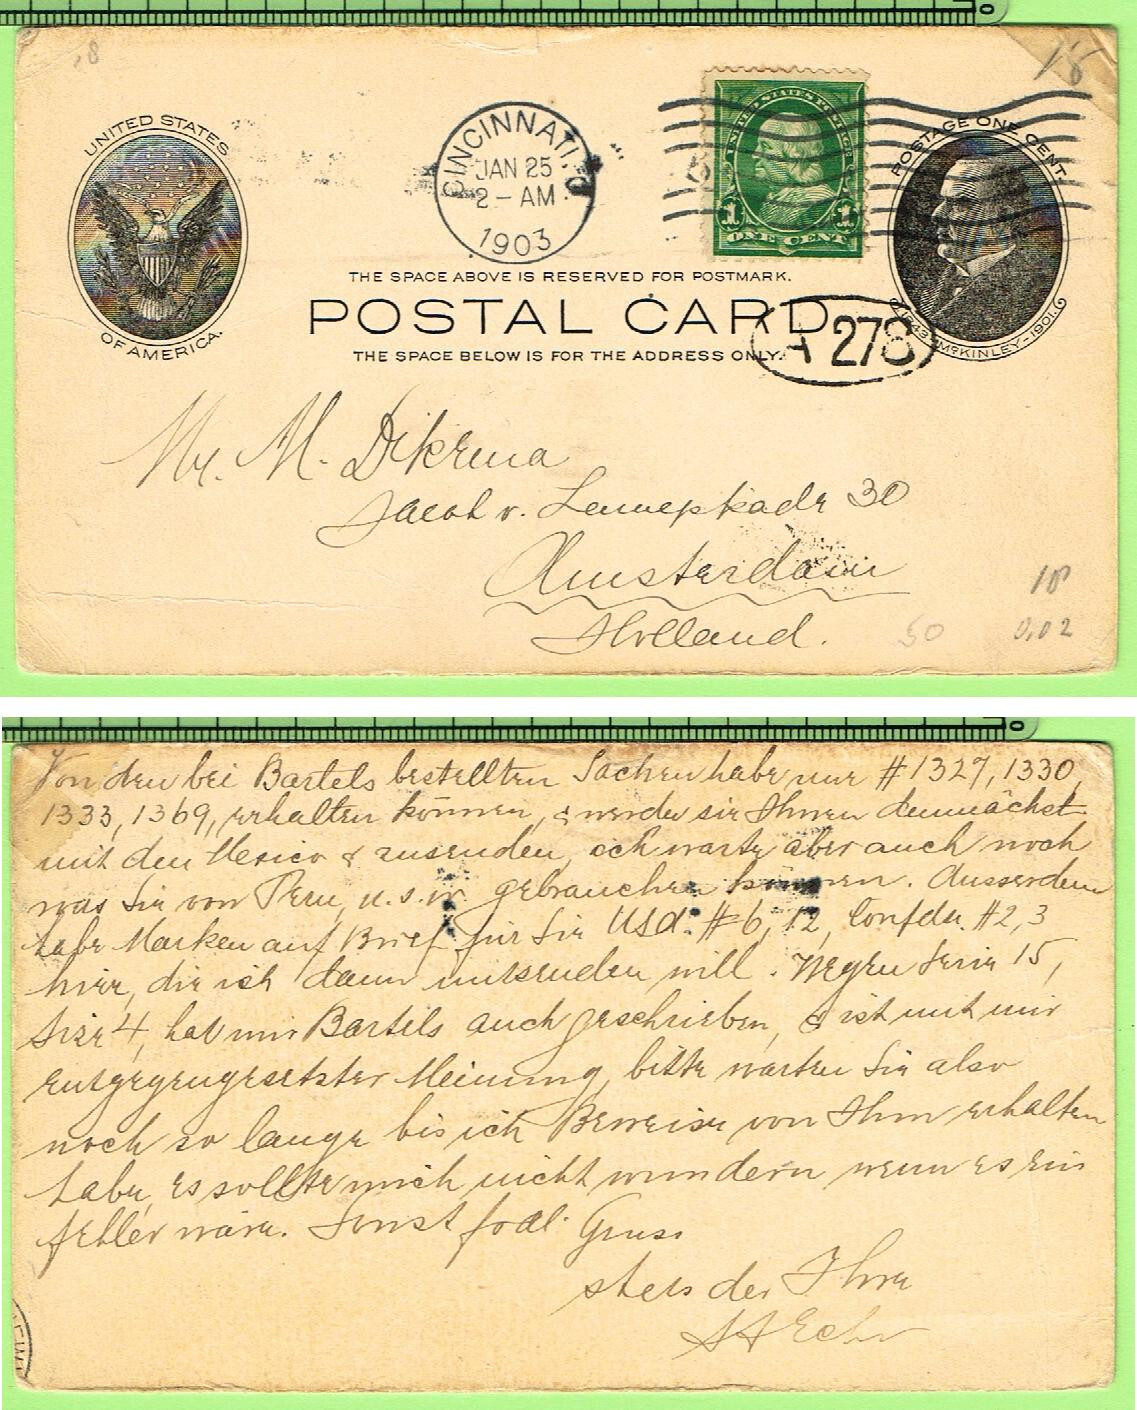 18
15
UNITED STATES
OF AMERICA.
CINCINNATI, O
JAN 25
2 - AM
1903
UNITED STATES POSTAGE
1 1
ONE CENT
POSTAGE ONE CENT.
1843-McKINLEY-1901.
THE SPACE ABOVE IS RESERVED FOR POSTMARK.
POSTAL CARD
THE SPACE BELOW IS FOR THE ADDRESS ONLY.
A 278
Mr. M. Dikema
Jacob v. Lennepkade 30
Amsterdam
Holland.
50
0,02
Von den bei Bartels bestellten Sachen habe nur #1327, 1330,
1333, 1369, erhalten können, & werde sie Ihnen demnächst
mit den Mexico & zusenden, ich warte aber auch noch
was Sie von Peru, u.s.w. gebrauchen können. Ausserdem
habe Marken auf Brief für Sie USd. #6, 12, Confdr. #2,3
hier, die ich dann mitsenden will. Wegen Serie 15,
Size 4, hat mir Bartels auch geschrieben, & ist mit mir
entgegengesetzter Meinung, bitte warten Sie also
noch so lange bis ich Beweise von Ihm erhalten
habe, es sollte mich nicht wundern wenn es ein
fehler wäre. Sonst fodl. Gruss
stets der Ihre